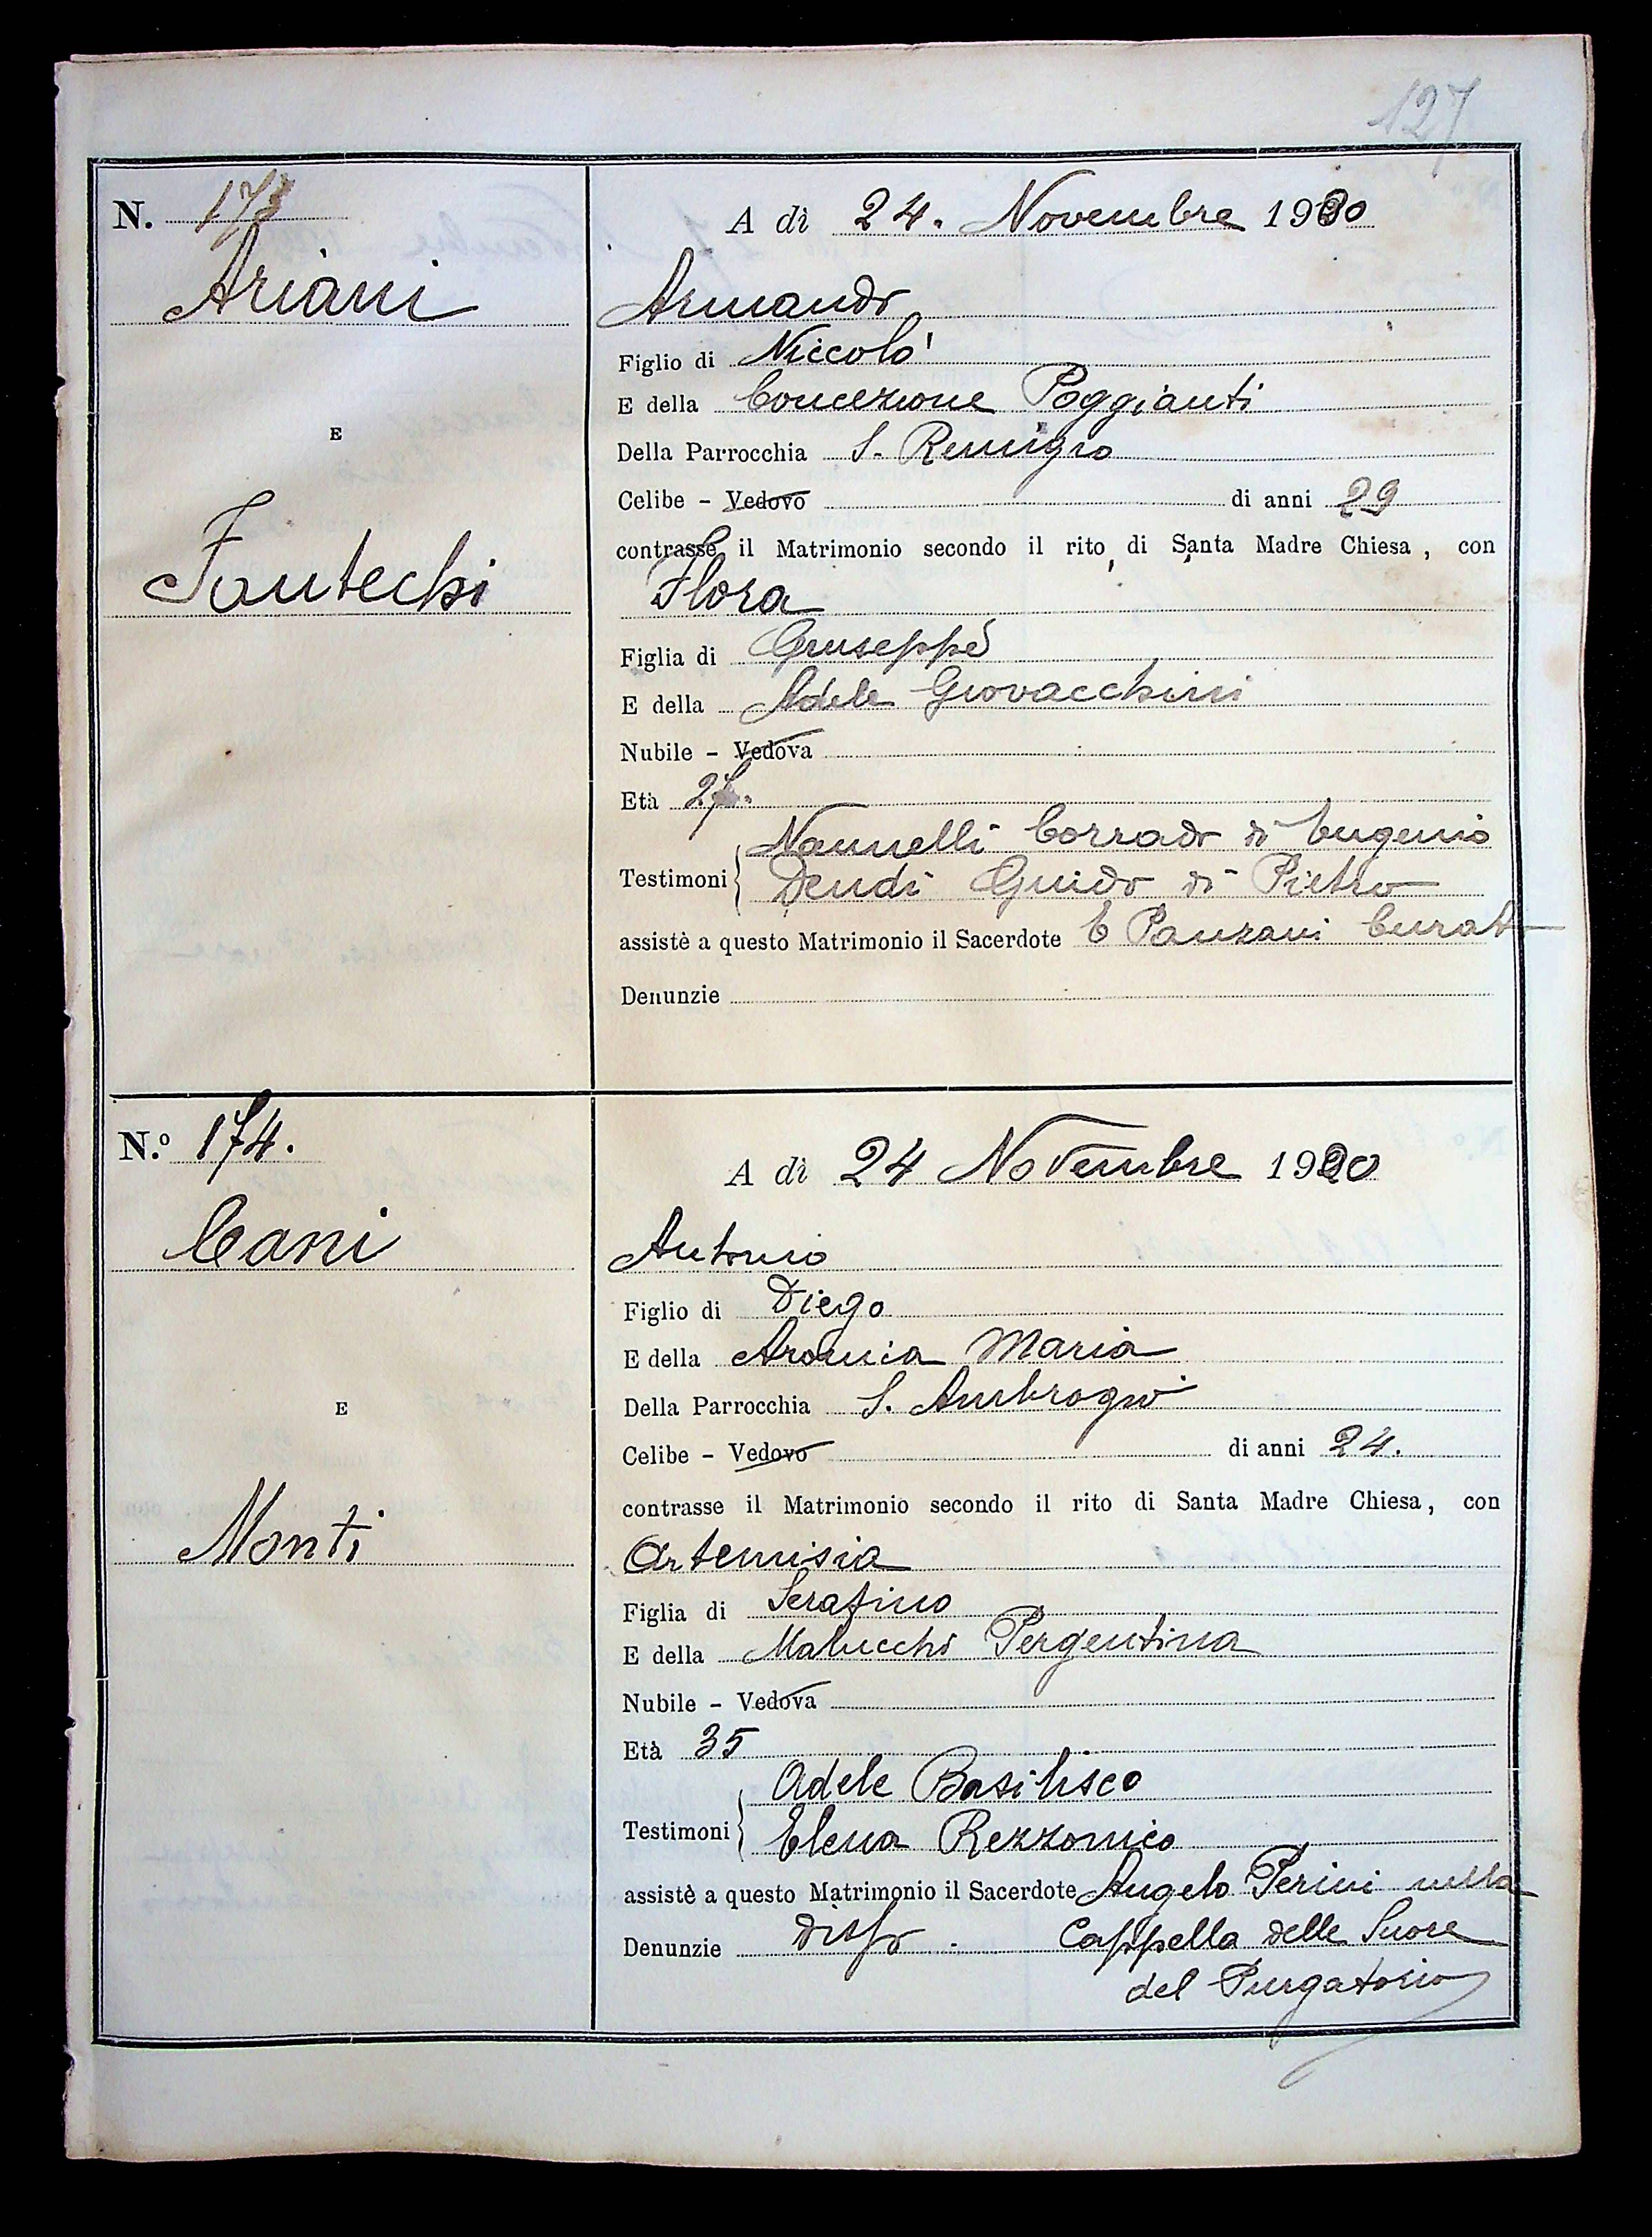 127
N. 173
A dì 24. Novembre 1920
Ariani
Armando
Figlio di Niccolò
E della Concezione Poggianti
E
Della Parrocchia S. Remigio
Celibe - Vedovo di anni 29
contrasse il Matrimonio secondo il rito di Santa Madre Chiesa, con
Fantechi
Flora
Figlia di Giuseppe
E della Adele Giovacchini
Nubile - Vedova
Età
Nannelli Corrado di Eugenio
Testimoni Dendi Guido di Pietro
assistè a questo Matrimonio il Sacerdote E Panzani Curato
Denunzie
N.º 174.
A dì 24 Novembre 1920
Cani
Antonio
Figlio di Diego
E della Maria
E
Della Parrocchia S. Ambrogio
Celibe - Vedovo di anni 24.
contrasse il Matrimonio secondo il rito di Santa Madre Chiesa, con
Monti
Artemisia
Figlia di Serafino
E della Malucchi Pergentina
Nubile - Vedova
Età 35
Adele Basilisco
Testimoni Elena Rezzonico
assistè a questo Matrimonio il Sacerdote Angelo Perini nella
Denunzie Cappella delle Suore
del Purgatorio